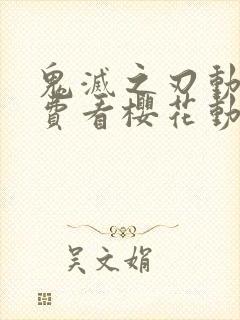 鬼滅之刃動
費看櫻花動
吴文娟